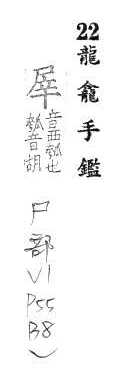 22龍龕手鑑
屖
音西瓠也
瓠音胡
尸部V1
P55
B8)